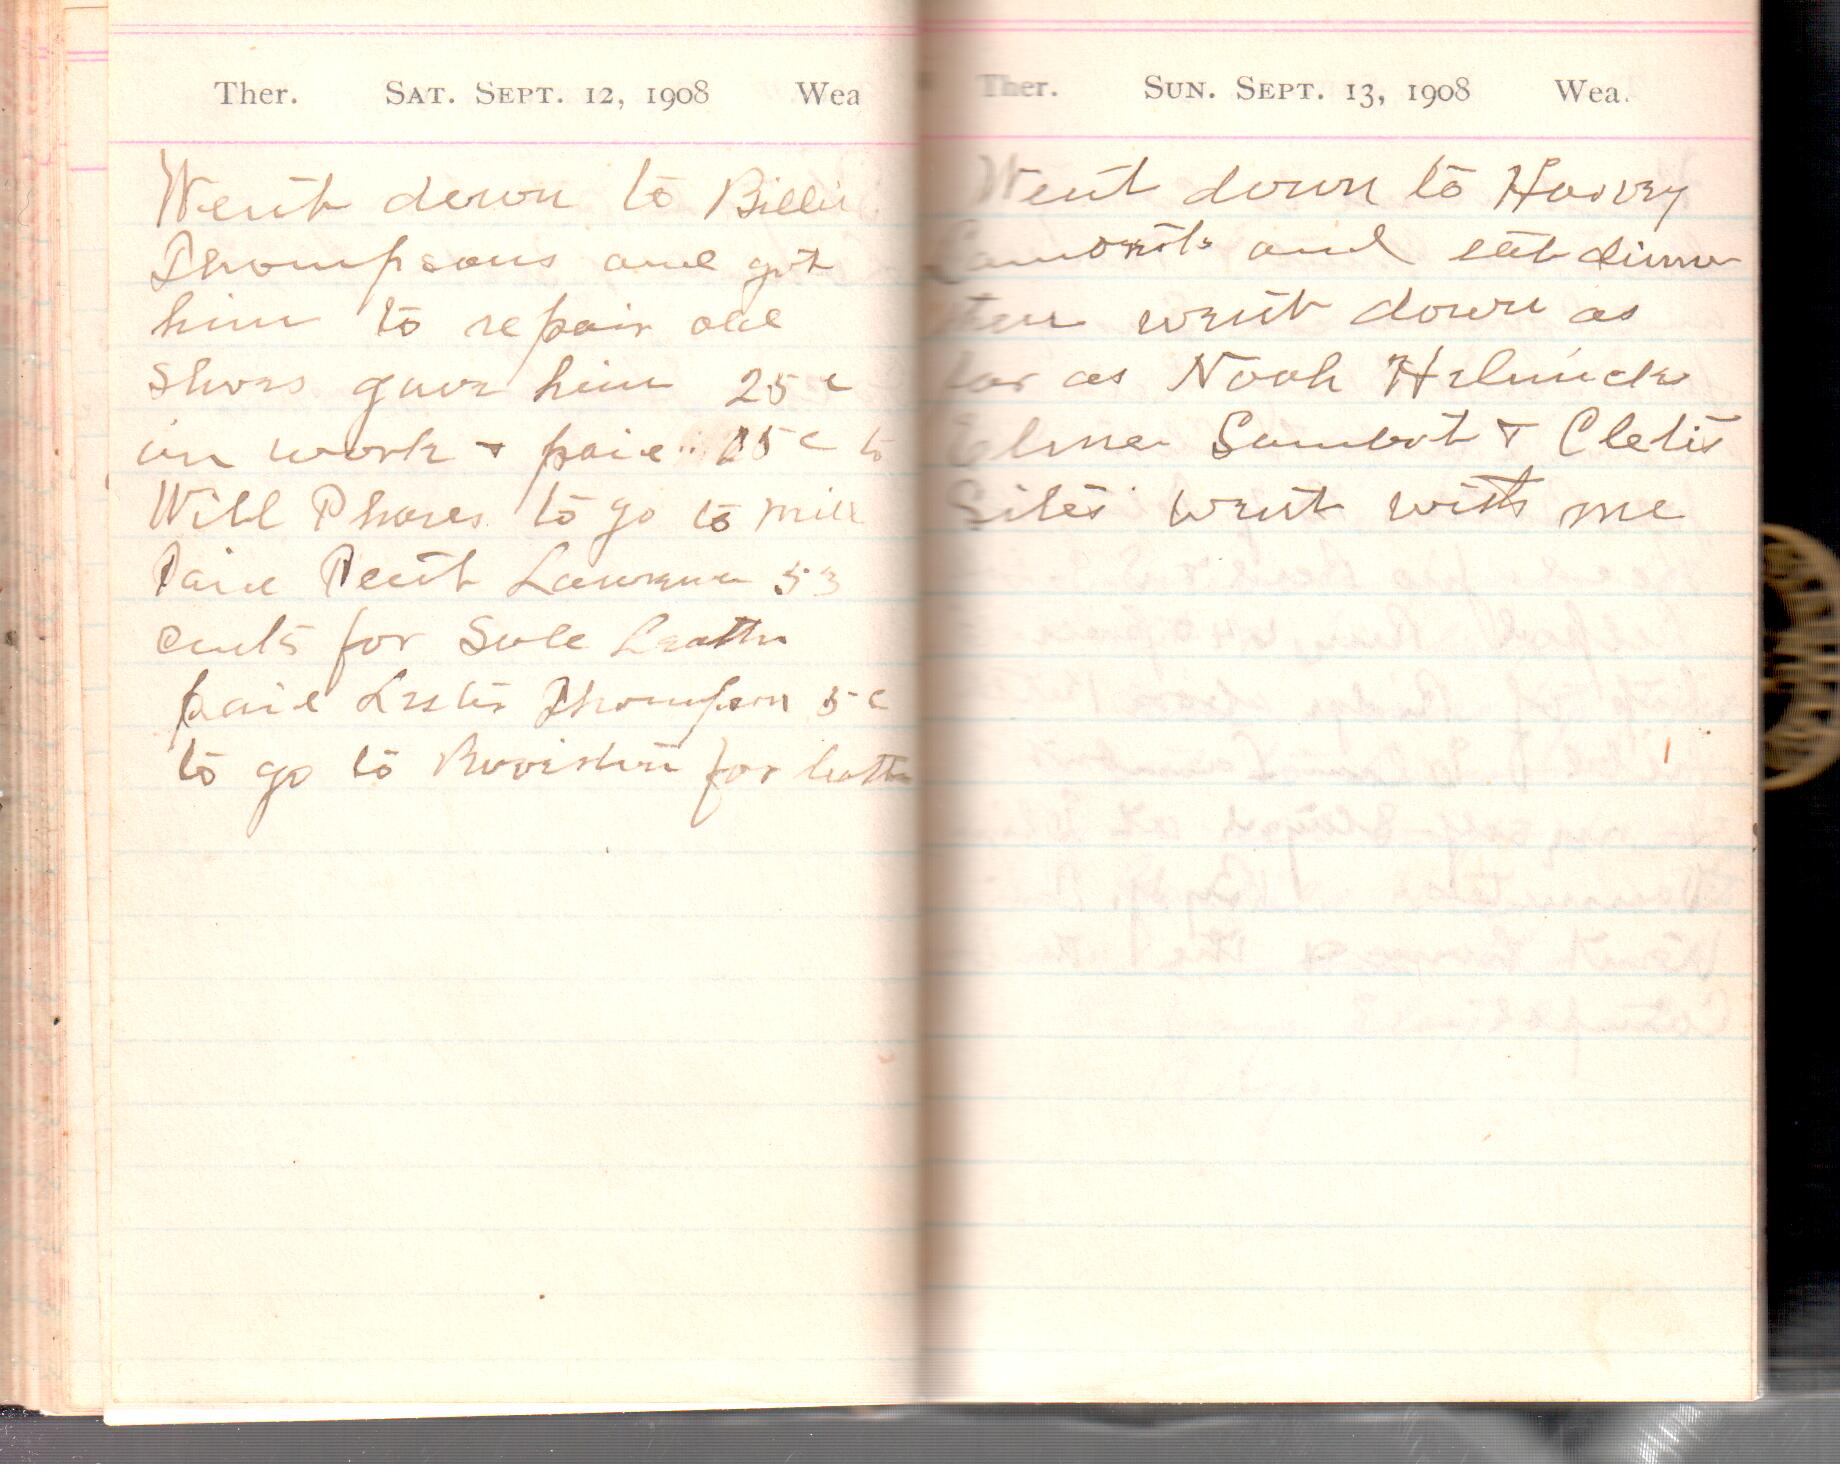 Ther. SAT. SEPT. 12, 1908 Wea
Went down to Billie
Thompsons and got
him to repair old
shoes gave him 25 c
in work + paid 15 c to
Will Phares to go to mill
Paid Lawrence 53
cents for Sole Leather
paid Lester Thompson 5 c
to go to for leather
Ther. SUN. SEPT. 13, 1908 Wea.
Went down to Harvey
and eat dinner
then went down as
far as Noah Helmicks
Elmer Lambert + Cletis
Sites went with me